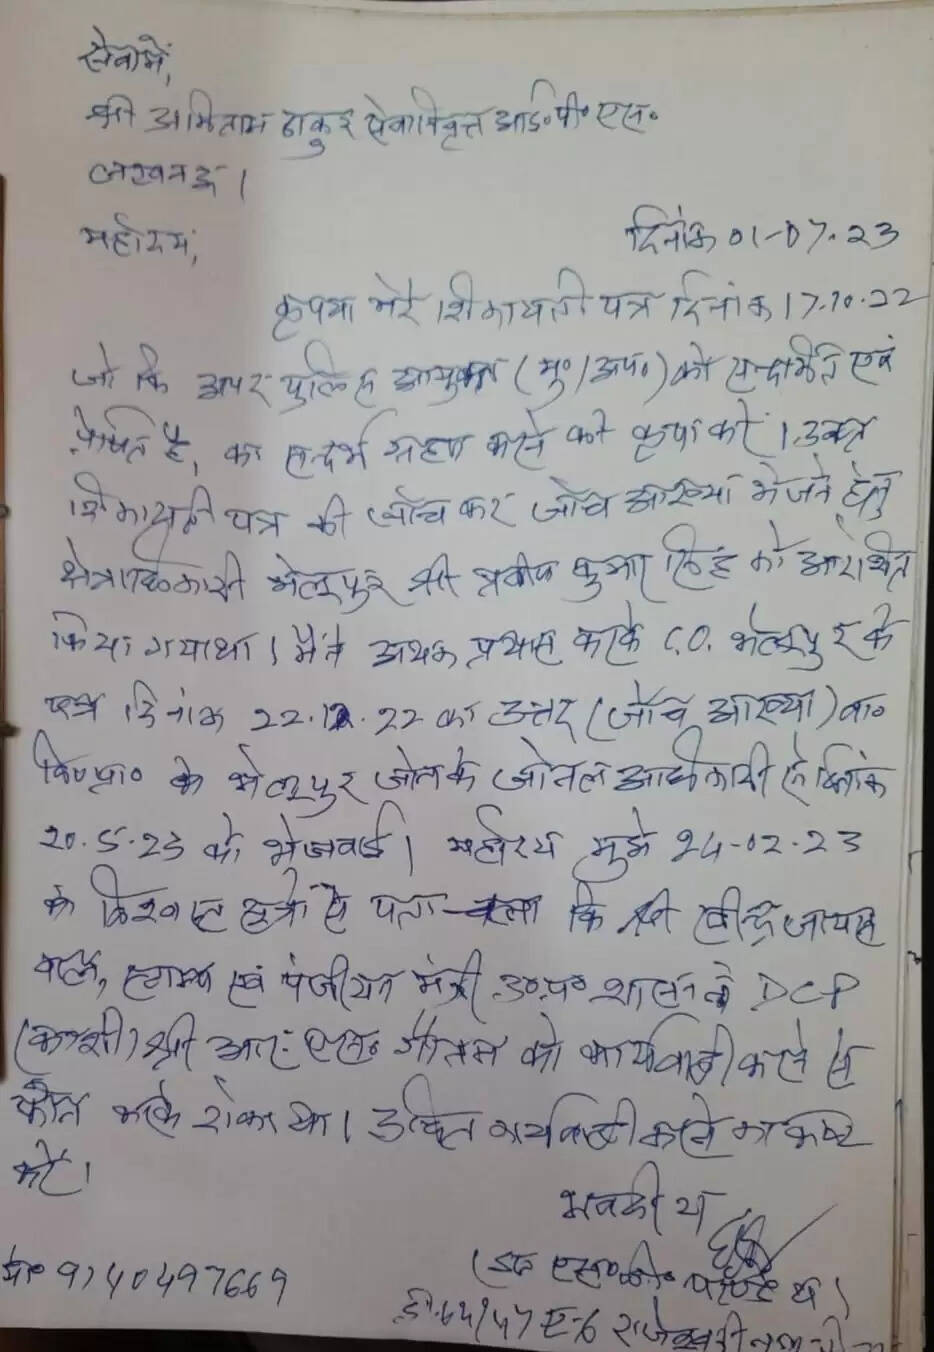 सेवामें,
श्री अमिताभ ठाकुर सेवानिवृत्त आई०पी०एस०
लखनऊ।
महोदय,
दिनांक 01-07-23
कृपया मेरे शिकायती पत्र दिनांक 17.10.22
जो कि अपर पुलिस आयुक्त (मु०/अप०) को सन्दर्भित एवं
प्रेषित है, का सन्दर्भ ग्रहण करने की कृपा करें। उक्त
शिकायती पत्र की जाँच कर जाँच आख्या भेजने हेतु
क्षेत्राधिकारी भेलूपुर श्री प्रवीण कुमार सिंह को आदेशित
किया गया था। मैंने अथक प्रयास करके C.O. भेलूपुर के
पत्र दिनांक 22.12.22 का उत्तर (जाँच आख्या) वा०
वि०प्रा० के भेलूपुर जोन के जोनल अधिकारी से दिनांक
20.5.23 को भेजवाई। महोदय मुझे 24-02-23
को विश्वस्त सूत्रों से पता चला कि श्री रवीन्द्र जायस
वाल, स्टाम्प एवं पंजीयन मंत्री उ०प्र० शासन ने DCP
(काशी) श्री आर. एस. गौतम को कार्यवाही करने से
फोन करके रोका था। उचित कार्यवाही करने का कष्ट
करें।
भवदीय
मो० 9140497669
डी.64/47 ए-6